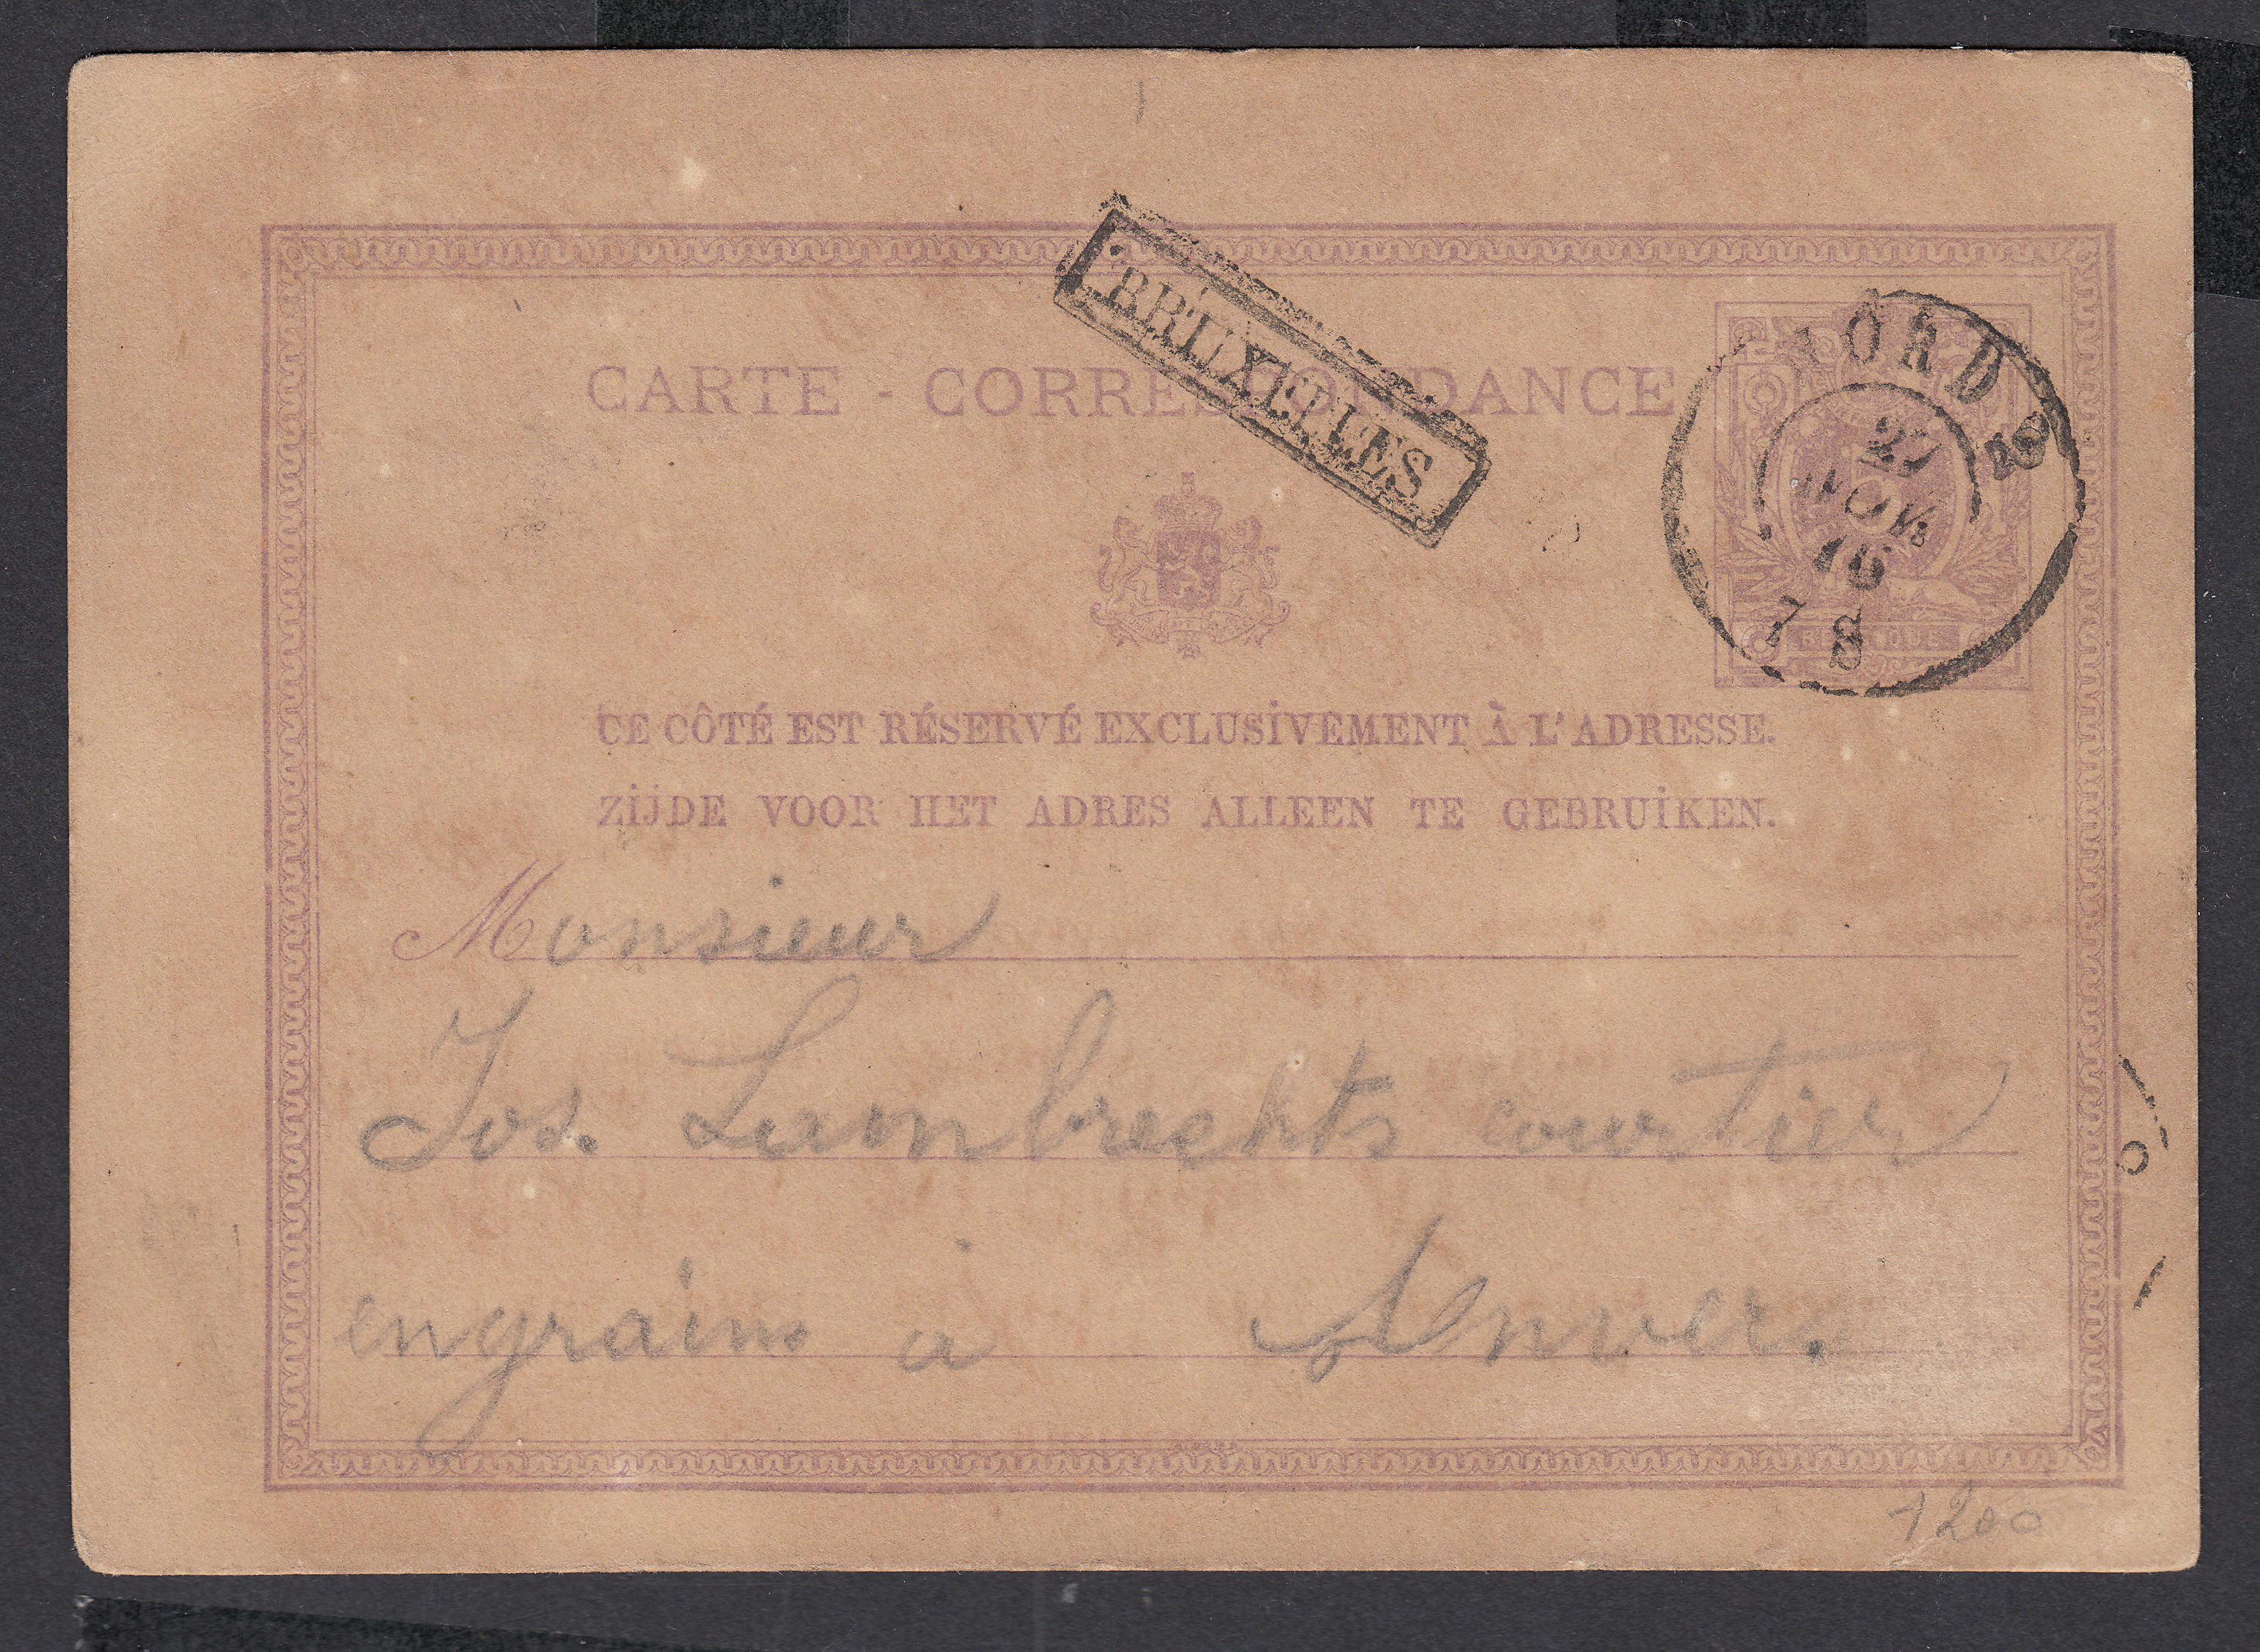 BRUXELLES
NORD 2
27
NOV
76
7 S
CARTE - CORRESPONDANCE
BELGIQUE
CE CÔTÉ EST RÉSERVÉ EXCLUSIVEMENT À L'ADRESSE.
ZIJDE VOOR HET ADRES ALLEEN TE GEBRUIKEN.
Monsieur
Jos. Lambrechts courtier
en grains à Anvers.
1200